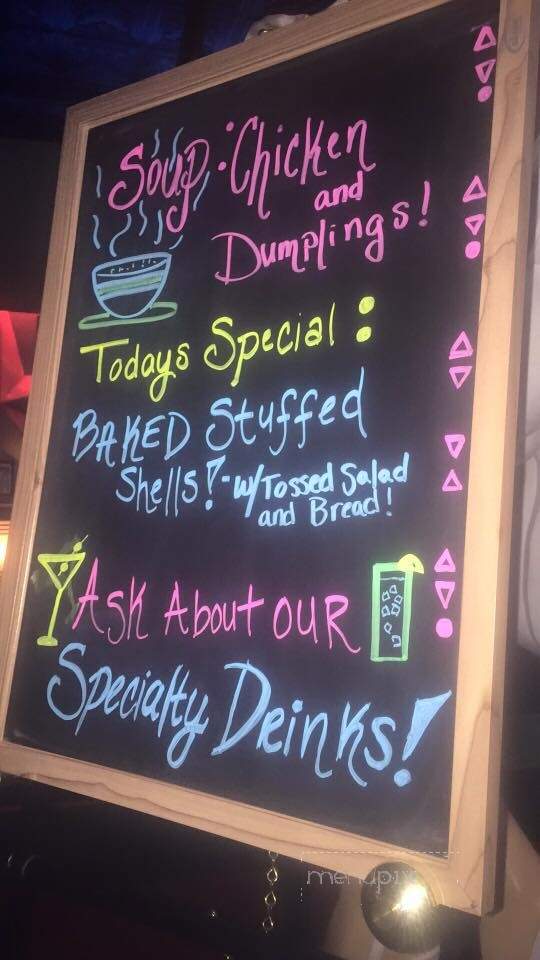 Soup: Chicken
and
Dumplings!
Todays Special:
BAKED Stuffed
Shells! - w/Tossed Salad
and Bread!
Ask About our
Specialty Drinks!
menupix